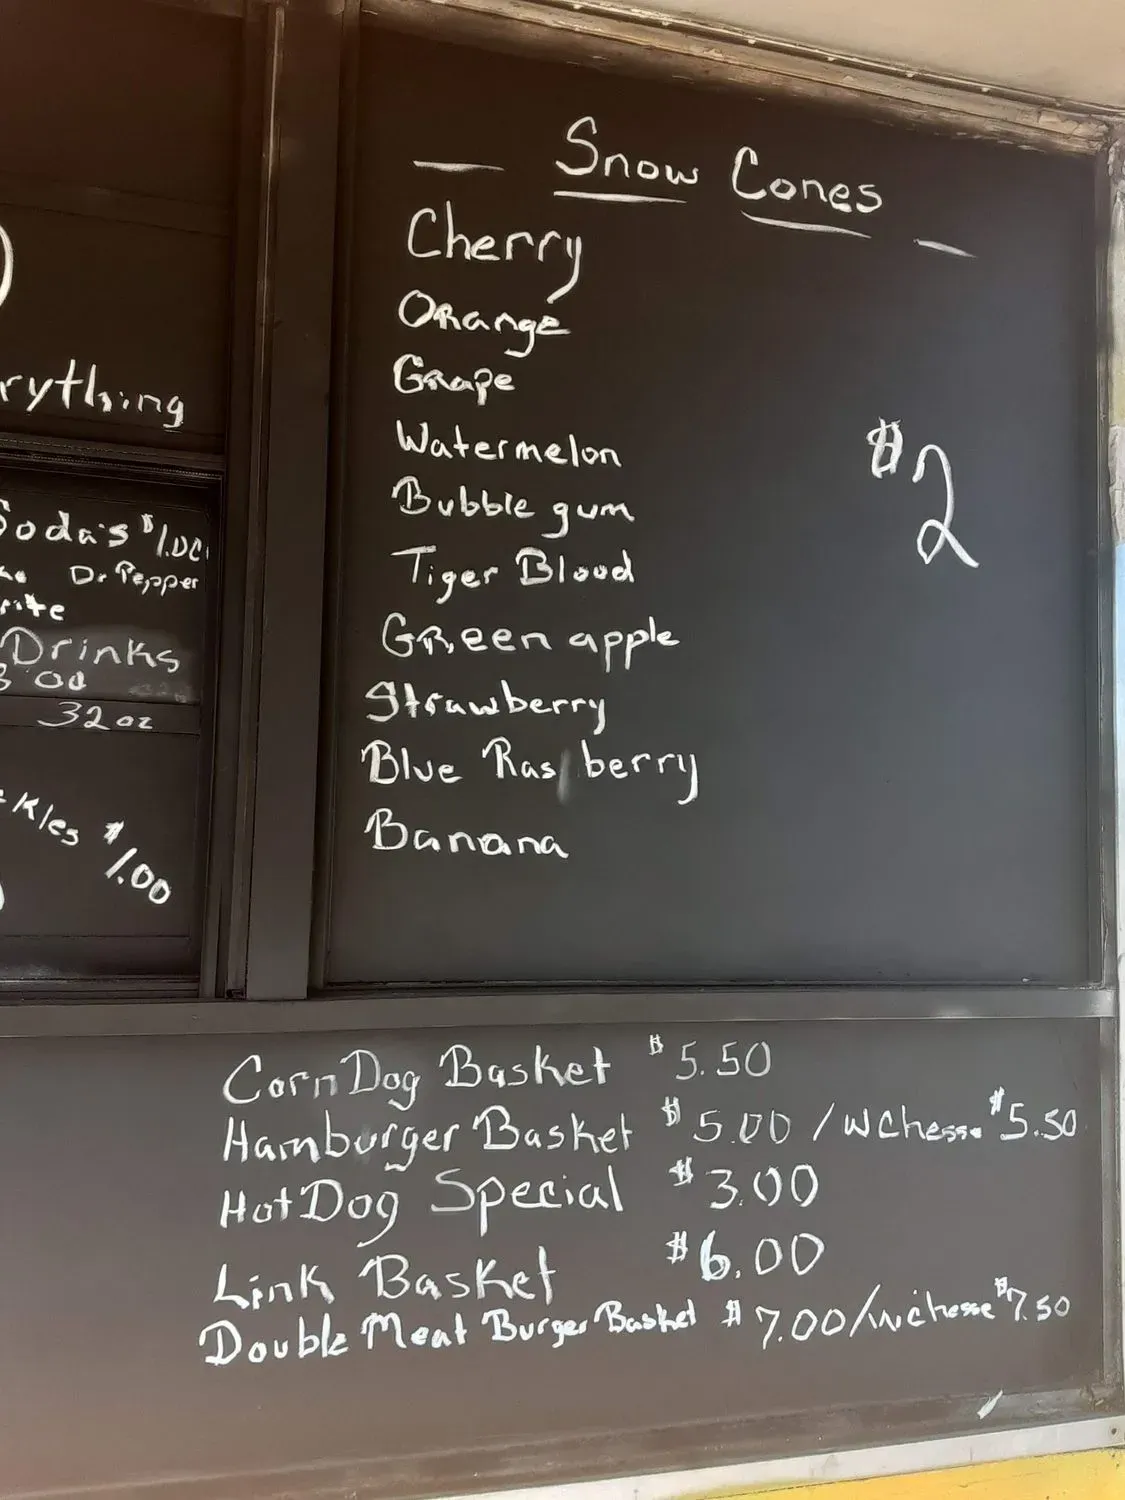 rything
Soda's $1.00
Dr Pepper
Drinks
32oz
$1.00
Snow Cones
Cherry
Orange
Grape
Watermelon
Bubble gum
$2
Tiger Blood
Green apple
Strawberry
Blue Ras berry
Banana
Corn Dog Basket $5.50
Hamburger Basket $5.00 / W Chesse $5.50
Hot Dog Special $3.00
Link Basket $6.00
Double Meat Burger Basket $7.00/W chesse $7.50